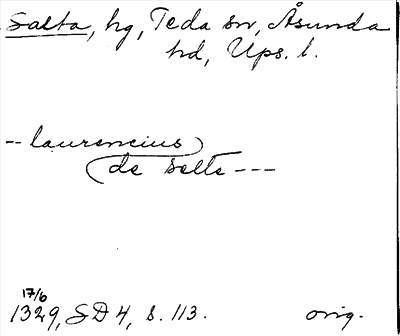 Salta, hg, Teda sn, Åsunda
hd, Ups. l.
-- laurencius
de salte ---
17/6
1329, SD 4, s. 113. orig.